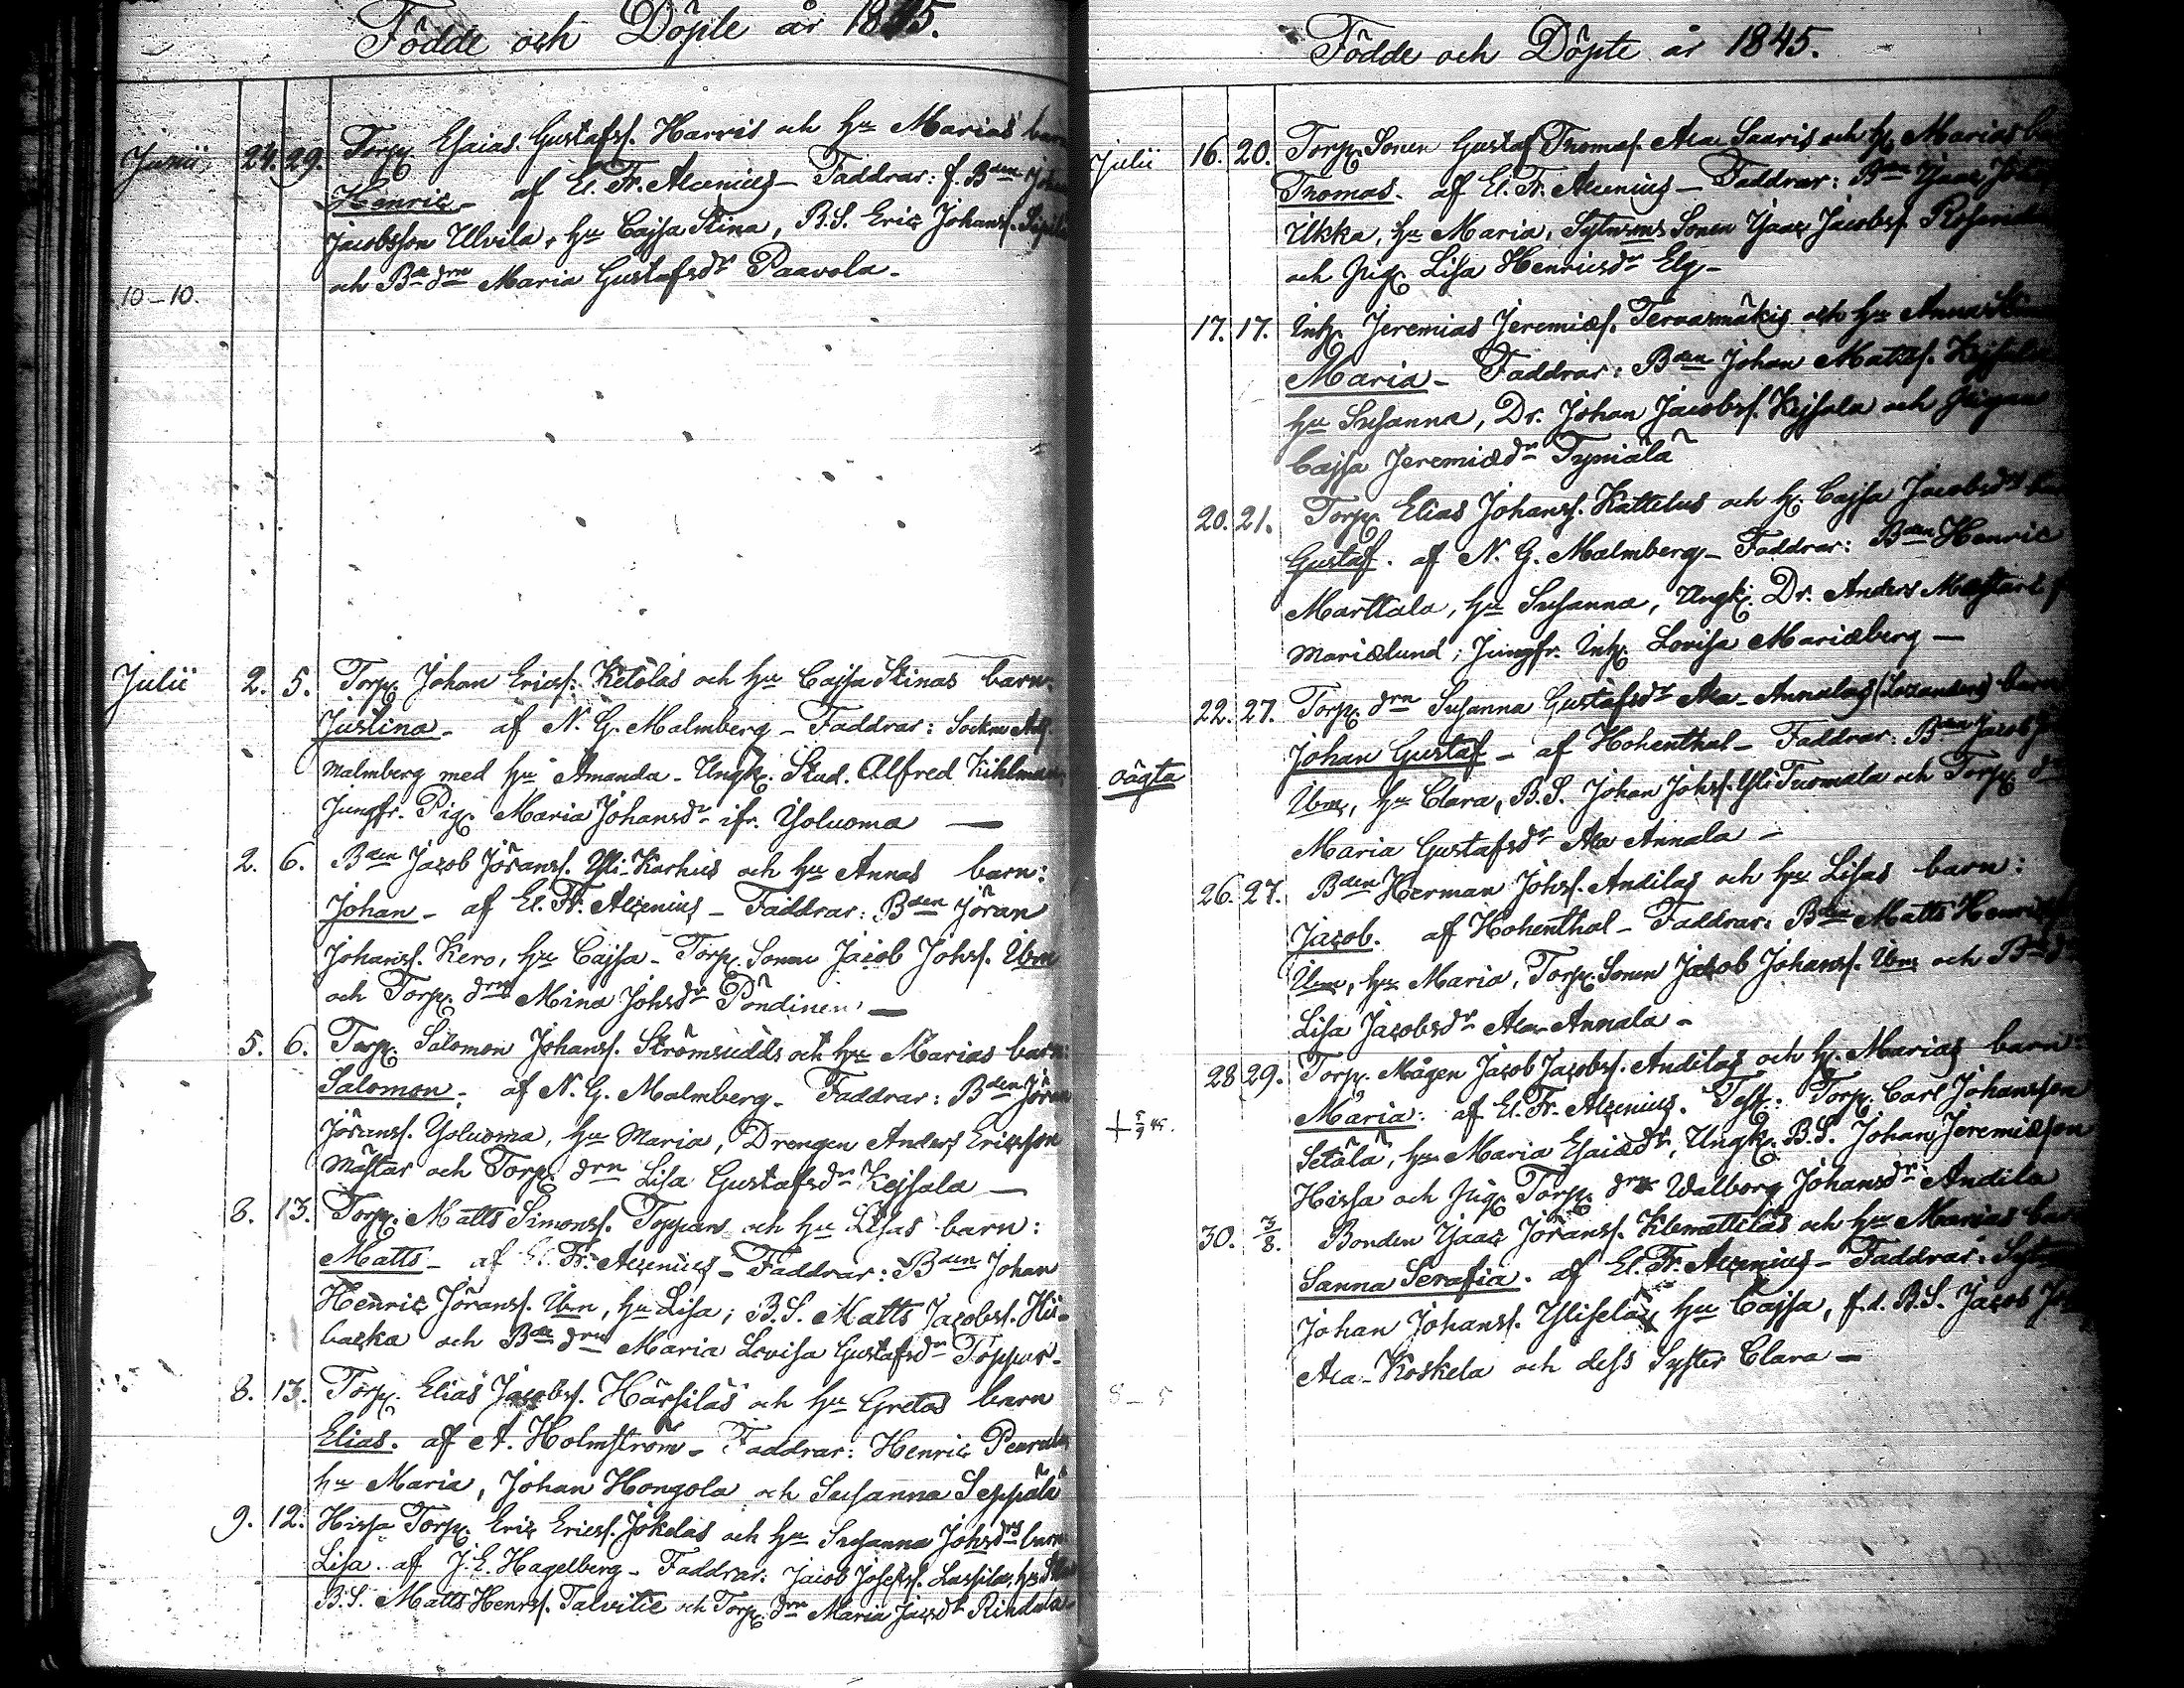 Födde och Döpte år 1845.
Junii 24. 29. Torp. Esaias Gustafss. Harris och hu Marias barn
Henric - af El. Fr. Alcenius - Faddrar: f. Bden Johan
Jacobsson Ulvila, hu Cajsa Stina, B.S. Eric Johanss.
och Bde drn Maria Gustafsdr Paavola -
10-10.
Julii 2. 5. Torp. Johan Ericss. Ketolas och hu Cajsa Stinas barn:
Justina - af N. G. Malmberg - Faddrar: Sockne Adj.
Malmberg med hu Amanda - Ungk. Stud. Alfred Kihlman,
Jungfr. Pig. Maria Johansdr ifr. Yoluoma —
2. 6. Bden Jacob Jöranss. Yli-Karhus och hu Annas barn:
Johan - af El. Fr. Alcenius - Faddrar: Bden Jöran
Johanss. Kero, hu Cajsa - Torp. Sonen Jacob Johss. Ibm
och Torp. drn Mina Johsdr Pöndinen —
5. 6. Torp. Salomon Johanss. Strömsudds och hu Marias barn:
Salomon - af N. G. Malmberg - Faddrar: Bden Jöran
Jöranss. Yoluoma, hu Maria, Drengen Anders Ericsson
Mästar och Torp. drn Lisa Gustafsdr Kejsala —
8. 13. Torp. Matts Simonss. Toppars och hu Lisas barn:
Matts - af El. Fr. Alcenius - Faddrar: Bden Johan
Henric Jöranss. Ibm, hu Lisa; B.S. Matts Jacobss. Hii-
backa och Bde drn Maria Lovisa Gustafsdr Toppar -
8. 13. Torp. Elias Jacobss. Härsiläs och hu Gretas barn
Elias. af A. Holmström - Faddrar: Henric Penrala
hu Maria, Johan Hongola och Susanna Seppälä
9. 12. Hissa Torp. Eric Ericss. Jokelas och hu Susanna Johsdrs barn
Lisa. af J. E. Hagelberg - Faddrar: Jacob Josefss. Lassila, hu
B.S. Matts Henrss. Talvitie och Torp. drn Maria Jacsdr Rindala -
Födde och Döpte år 1845.
Julii 16. 20. Torp. Sonen Gustaf Thomass. Ala Saaris och h. Marias barn
Thomas. af El. Fr. Alcenius - Faddrar: Bden Isaac
Ukka, hu Maria, Sytnms Sonen Isaac Jacobss.
och Pig. Lisa Henricsdr Elg -
17. 17. Inh. Jeremias Jeremiæs. Tervasmäkis och hu Anna
Maria - Faddrar: Bden Johan Mattss. Kejsala
hu Susanna, Dr. Johan Jacobss. Kejsala och Pigan
Cajsa Jeremiædr Tyniälä
20. 21. Torp. Elias Johanss. Kattelus och h. Cajsa Jacobsdrs
Gustaf. af N. G. Malmberg - Faddrar: Bden Henric
Marttala, hu Susanna, Ungk. Dr. Anders Mästar
Mariælund; Jungfr. Inh. Lovisa Mariæberg —
22. 27. Torp. drn Susanna Gustafsdr Ala-Annalas (Lassanders) barn
oägta Johan Gustaf - af Hohenthal - Faddrar: Bden Jacob
Ibm, hu Clara, B.S. Johan Johss. Yli Tuomala och Torp. d
Maria Gustafsdr Ala Annala -
26. 27. Bden Herman Johss. Andilas och hu Lisas barn:
Jacob. af Hohenthal - Faddrar: Bden Matts
Ibm, hu Maria, Torp. Sonen Jacob Johanss. Ibm och Bde d
Lisa Jacobsdr Ala-Annala -
28 29. Torp. Mågen Jacob Jacobss. Andilas och h. Marias barn:
+ 5/9 45. Maria: af El. Fr. Alcenius. Test.: Torp. Carl Johansson
Setälä, hu Maria Esaiædr, Ungk. B.S. Johan Jeremiæson
Hissa och Pig. Torp. drn Walborg Johansdr Andila
30. 3/8. Bonden Isaac Jöranss. Klemettiläs och hu Marias barn
Sanna Serafia. af El. Fr. Alcenius - Faddrar:
Johan Johanss. Ylisela, hu Cajsa, f.d. B.S. Jacob
Ala-Koskela och dess Syster Clara —
8 - 5